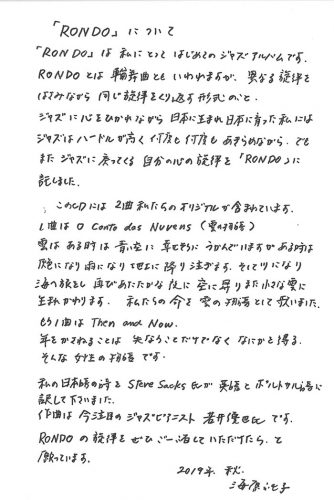 「RONDO」について
「RONDO」は 私にとって はじめての ジャズアルバムです。
RONDOとは 輪舞曲とも いわれますが、異なる旋律を
はさみながら 同じ旋律をくり返す 形式のこと。
ジャズに心をひかれながら 日本に生まれ 日本に育った 私には
ジャズは ハードルが高く 何度も何度も あきらめながら、でも
また ジャズに 戻ってくる 自分の心の旋律を「RONDO」に
託しました。
このCDには 2曲 私たちの オリジナルが 含まれています。
1曲は O Conto das Nuvens (雲の物語)
雲は ある時は 青空に うかんでいますが ある時は
雨になり 地上に 降り注ぎます。そして川になり
海へ旅をし 再びあたたかな 空に 昇り また 小さな雲に
生まれかわります。 私たちの命を 雲の物語として 歌いました。
もう1曲は Then and Now.
年をかさねることは 失なうことだけでなく なにかを得る。
そんな 女性の物語です。
私の日本語の詩を Steve Sacks 氏が 英語と ポルトガル語に
訳して下さいました。
作曲は 今注目の ジャズピアニスト 若井優也氏 です。
RONDOの旋律を ぜひご一緒していただけたら、と
願っています。
2019年 秋
海原